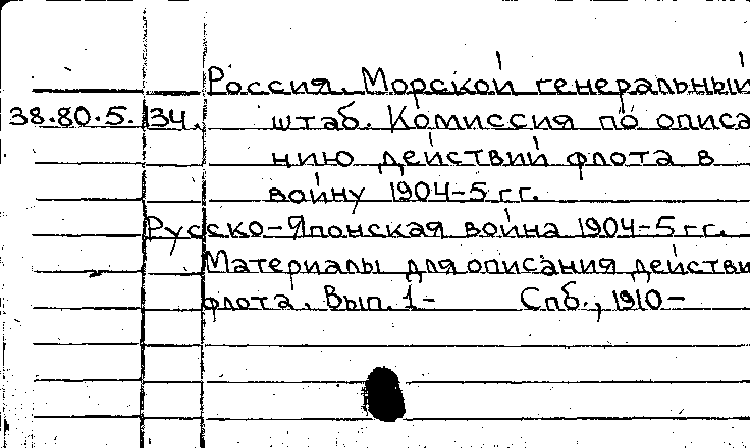 Россия. Морской генеральный
38.80.5. 34. штаб. Комиссия по описа
нию действий флота в
войну 1904-5 гг.
Русско-Японская война 1904-5 гг.
Материалы для описания действи
флота. Вып. 1- Спб., 1910-